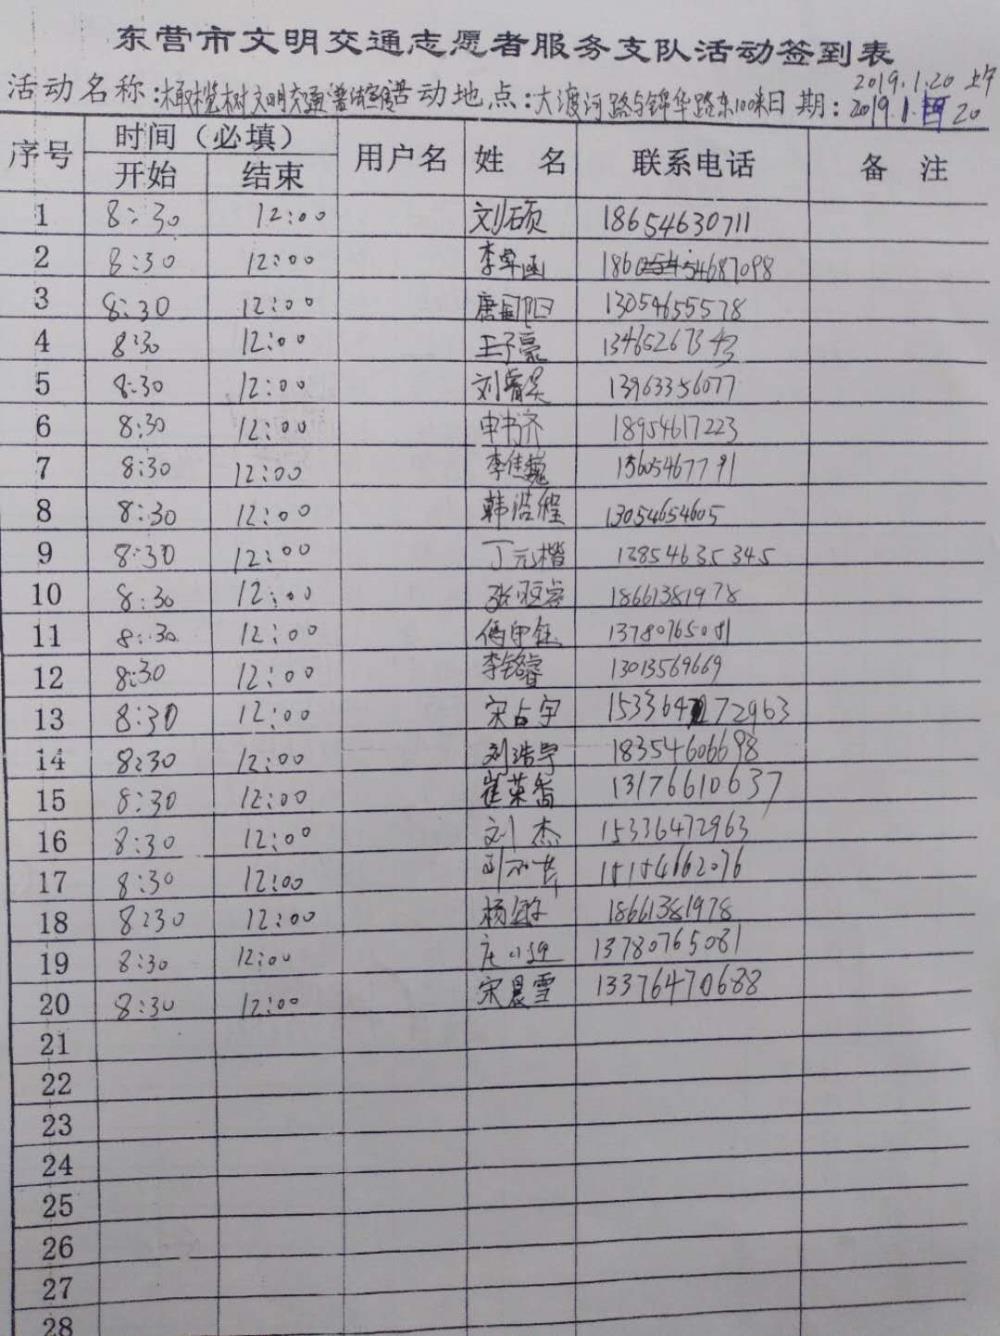 东营市文明交通志愿者服务支队活动签到表
2019.1.20 上午
活动名称:橄榄树文明交通普法宣传 活动地点:大渡河路与锦华路东100米 日期:2019.1.20
序号 时间（必填） 用户名 姓 名 联系电话 备 注
开始 结束
1 8:30 12:00 刘硕 18654630711
2 8:30 12:00 李卓函 18654687098
3 8:30 12:00 13054655578
4 8:30 12:00 王子豪 13465267343
5 8:30 12:00 刘睿昊 13963356077
6 8:30 12:00 申书齐 18954617223
7 8:30 12:00 李佳巍 13605467791
8 8:30 12:00 韩浩程 13054654605
9 8:30 12:00 丁元楷 13854635345
10 8:30 12:00 18661381978
11 8:30 12:00 13780765081
12 8:30 12:00 李铭睿 13013569669
13 8:30 12:00 宋占宇 15336472963
14 8:30 12:00 刘浩宇 18354606698
15 8:30 12:00 崔荣香 13176610637
16 8:30 12:00 刘杰 15336472963
17 8:30 12:00 15154662076
18 8:30 12:00 杨敏 18661381978
19 8:30 12:00 13780765081
20 8:30 12:00 宋晨雪 13376470688
21
22
23
24
25
26
27
28